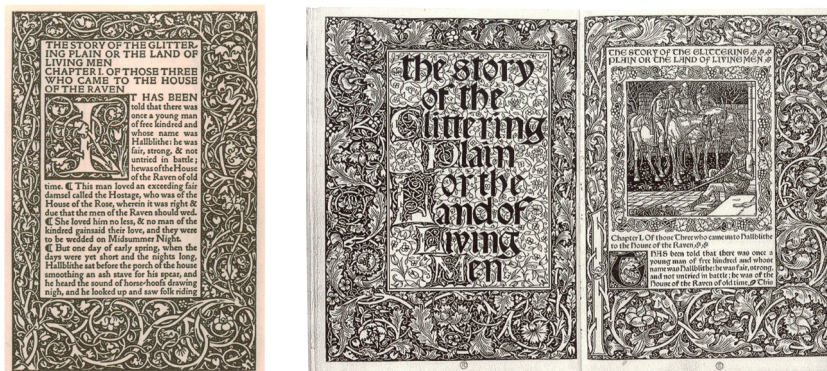 THE STORY OF THE GLITTER-
ING PLAIN OR THE LAND OF
LIVING MEN
CHAPTER I. OF THOSE THREE
WHO CAME TO THE HOUSE
OF THE RAVEN
IT HAS BEEN
told that there was
once a young man
of free kindred and
whose name was
Hallblithe: he was
fair, strong, & not
untried in battle;
he was of the House
of the Raven of old
time. ¶ This man loved an exceeding fair
damsel called the Hostage, who was of the
House of the Rose, wherein it was right &
due that the men of the Raven should wed.
¶ She loved him no less, & no man of the
kindred gainsaid their love, and they were
to be wedded on Midsummer Night.
¶ But one day of early spring, when the
days were yet short and the nights long,
Hallblithe sat before the porch of the house
smoothing an ash stave for his spear, and
he heard the sound of horse-hoofs drawing
nigh, and he looked up and saw folk riding
the story
of the
Glittering
Plain
or the
Land of
Living
Men
THE STORY OF THE GLITTERING
PLAIN OR THE LAND OF LIVING MEN
Chapter I. Of those Three who came unto Hallblithe
to the House of the Raven.
IT HAS been told that there was once a
young man of free kindred and whose
name was Hallblithe: he was fair, strong,
and not untried in battle; he was of the
House of the Raven of old time. This